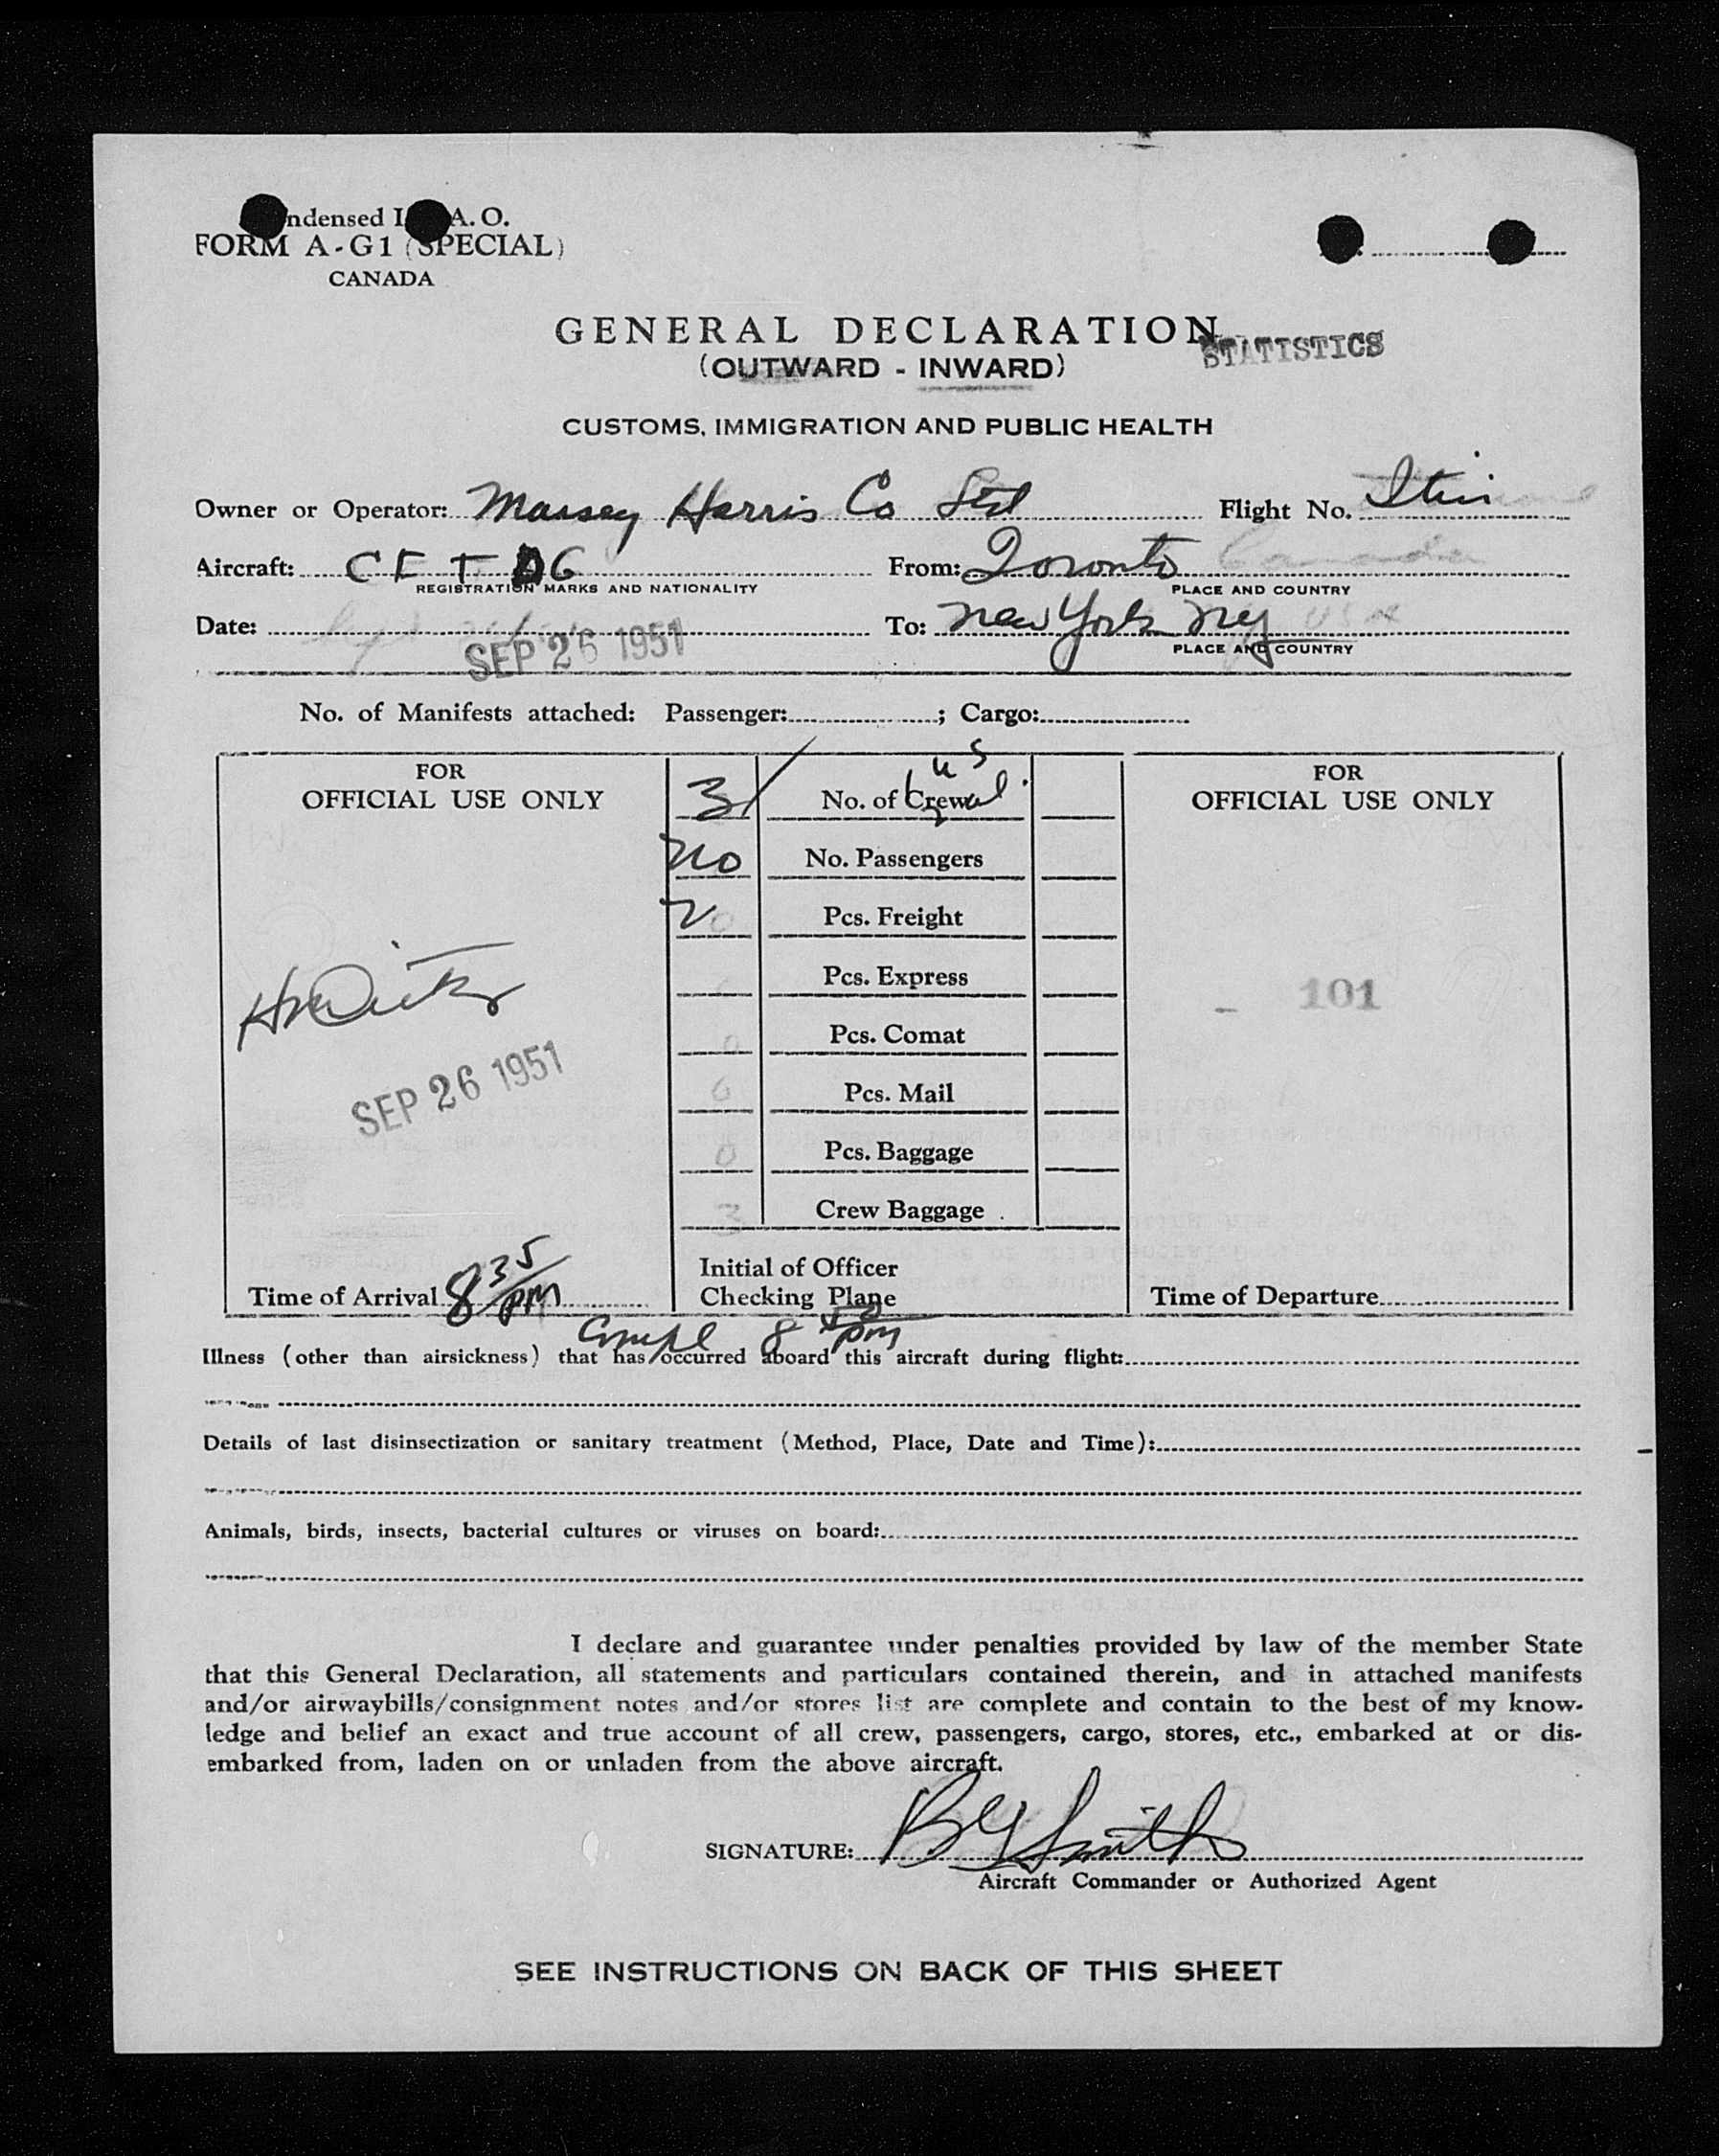 ndensed I A. O.
FORM A-G1 (SPECIAL)
CANADA
GENERAL DECLARATION
STATISTICS
(OUTWARD - INWARD)
CUSTOMS, IMMIGRATION AND PUBLIC HEALTH
Owner or Operator: Massey Harris Co Ltd Flight No. Itin
Aircraft: CF TDG From: Toronto Canada
REGISTRATION MARKS AND NATIONALITY PLACE AND COUNTRY
Date: SEP 26 1951 To: New York NY USA
PLACE AND COUNTRY
No. of Manifests attached: Passenger: ; Cargo:
FOR
OFFICIAL USE ONLY
3 No. of Crew
FOR
OFFICIAL USE ONLY
no No. Passengers
Pcs. Freight
Pcs. Express
- 101
0 Pcs. Comat
SEP 26 1951
0 Pcs. Mail
0 Pcs. Baggage
3 Crew Baggage
Time of Arrival 8 35 PM
Initial of Officer
Checking Plane
Time of Departure
Compl 8 50 pm
Illness (other than airsickness) that has occurred aboard this aircraft during flight:
Details of last disinsectization or sanitary treatment (Method, Place, Date and Time):
Animals, birds, insects, bacterial cultures or viruses on board:
I declare and guarantee under penalties provided by law of the member State
that this General Declaration, all statements and particulars contained therein, and in attached manifests
and/or airwaybills/consignment notes and/or stores list are complete and contain to the best of my know-
ledge and belief an exact and true account of all crew, passengers, cargo, stores, etc., embarked at or dis-
embarked from, laden on or unladen from the above aircraft.
SIGNATURE: Smith
Aircraft Commander or Authorized Agent
SEE INSTRUCTIONS ON BACK OF THIS SHEET